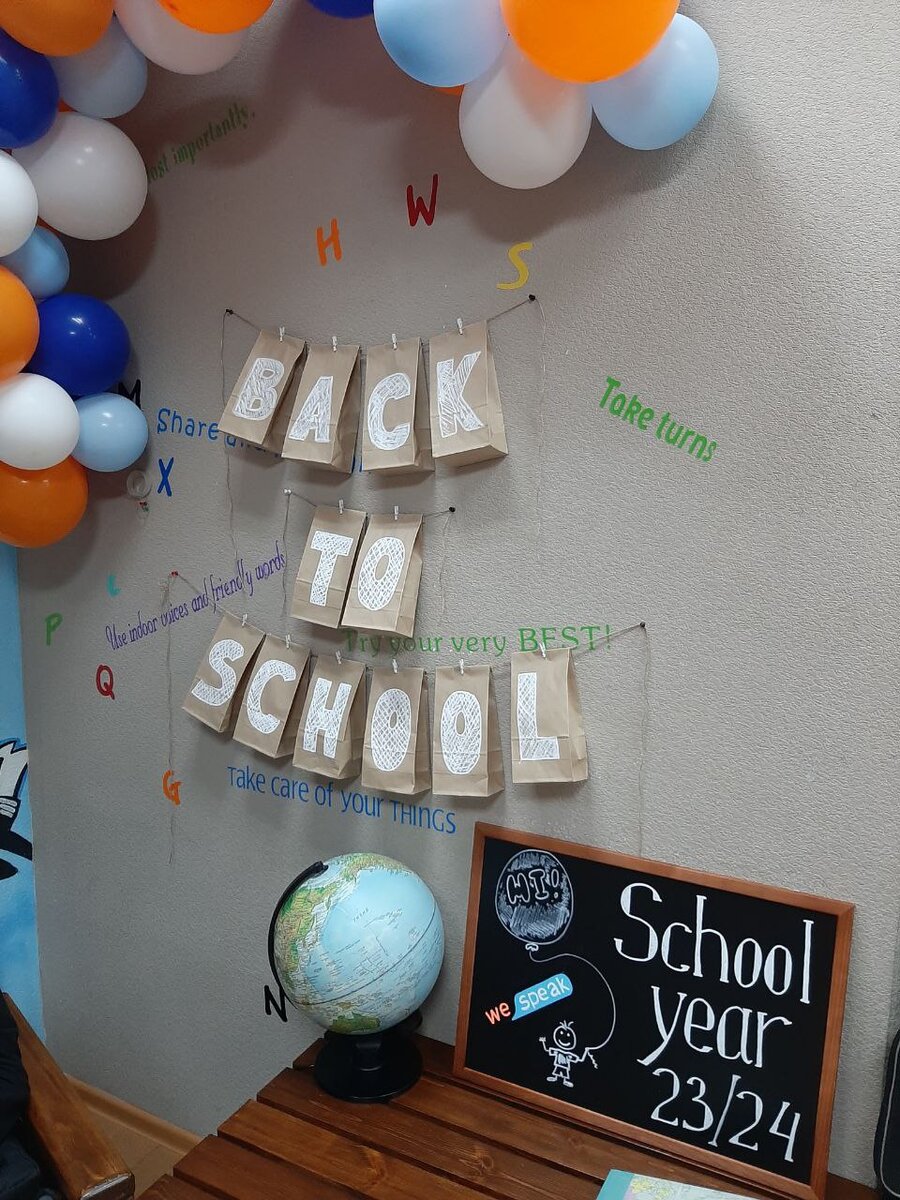 importantly,
H
W
S
BACK
Take turns
M
Share
X
TO
L
Use indoor voices and friendly words
P
Try your very BEST!
Q
SCHOOL
G
Take care of your THINGS
HI!
School
year
23/24
we speak
N